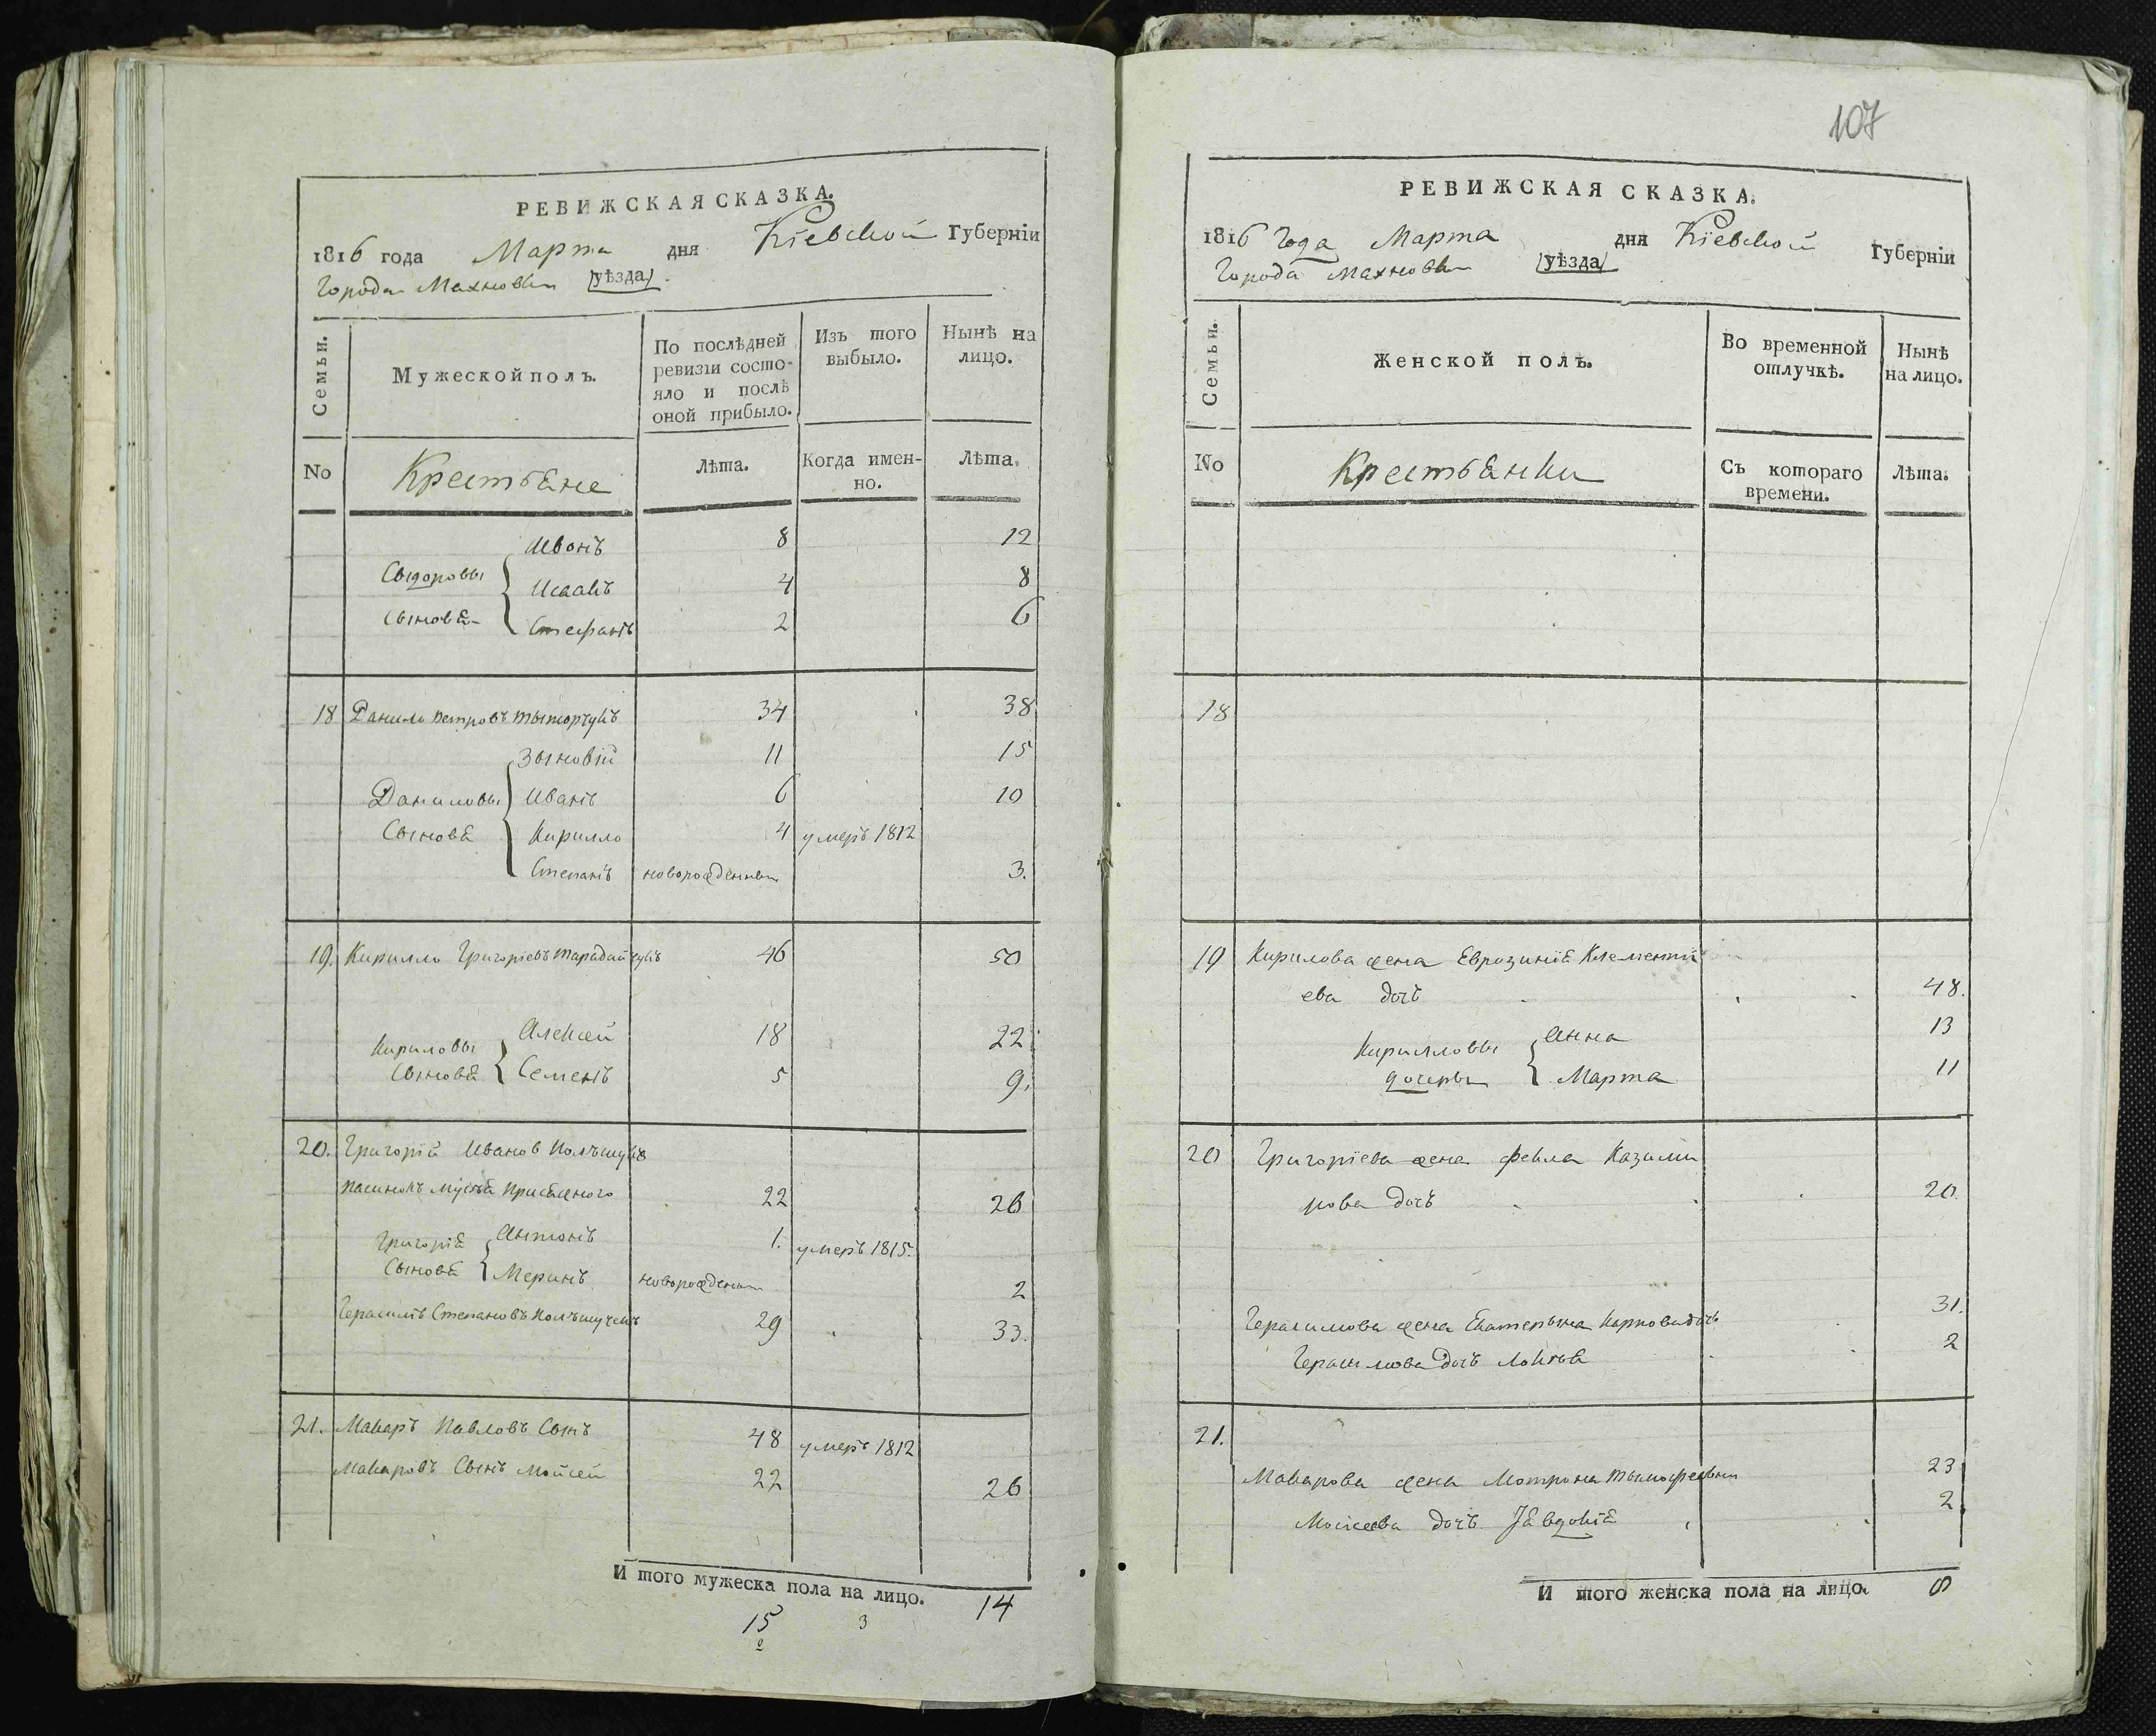 РЕВИЖСКАЯ СКАЗКА.
1816 года Марта дня Кіевской Губерніи
Города Махновки уѣзда
Семьи.
Мужеской полъ.
По послѣдней ревизіи состо-
яло и послѣ
оной прибыло.
Изъ того
выбыло.
Нынѣ на
лицо.
No
Крестьяне
Лѣта.
Когда имен-
но.
Лѣта.
Ивонъ 8 12
Сыдоровы Исаакъ 4 8
сыновья Стефанъ 2 6
18 Данило Петровъ 34 38
Зыновій 11 15
Даниловы Иванъ 6 10
Сыновья Кирилло 4 умеръ 1812
Степанъ новорожденный 3.
19. Кирилло Григоріевъ Тарадайчукъ 46 50
Кириловы Алексей 18 22
Сыновья Семенъ 5 9.
20. Григорій Иванов
пасинокъ 22 26
Григорія Антонъ 1. умеръ 1815.
Сыновья новорожденный 2
Герасимъ Степановъ 29 33.
21. Макаръ Павловъ Сынъ 48 умеръ 1812
Макаровъ Сынъ Мойсей 22 26
И того мужеска пола на лицо. 14
15 3
2
107
РЕВИЖСКАЯ СКАЗКА.
1816 Года Марта дня Кіевской Губерніи
Города Махновки уѣзда
Семьи.
Женской полъ.
Во временной
отлучкѣ.
Нынѣ
на лицо.
No
Крестьянки
Съ котораго
времени.
Лѣта.
18
19 Кирилова жена Еврозинія Клементи
ева дочь 48.
Кирилловы Анна 13
дочеры Марта 11
20 Григоріева жена Феkла Казими
рова дочь 20.
Герасимова жена Екатерына Карповадочь 31.
Герасимова дочь 2
21.
Макарова жена Мотрона 23
Моисеева дочь Явдокія 2
И того женска пола на лицо. 8